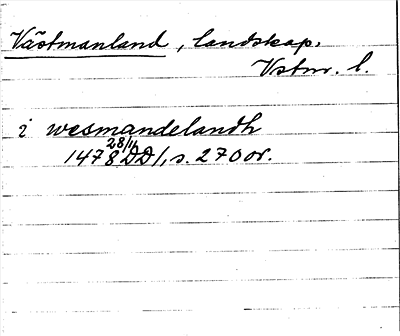 Västmanland, landskap.
Vstm. l.
i wesmandelandh
1478 28/11 DD 1, s. 270 or.